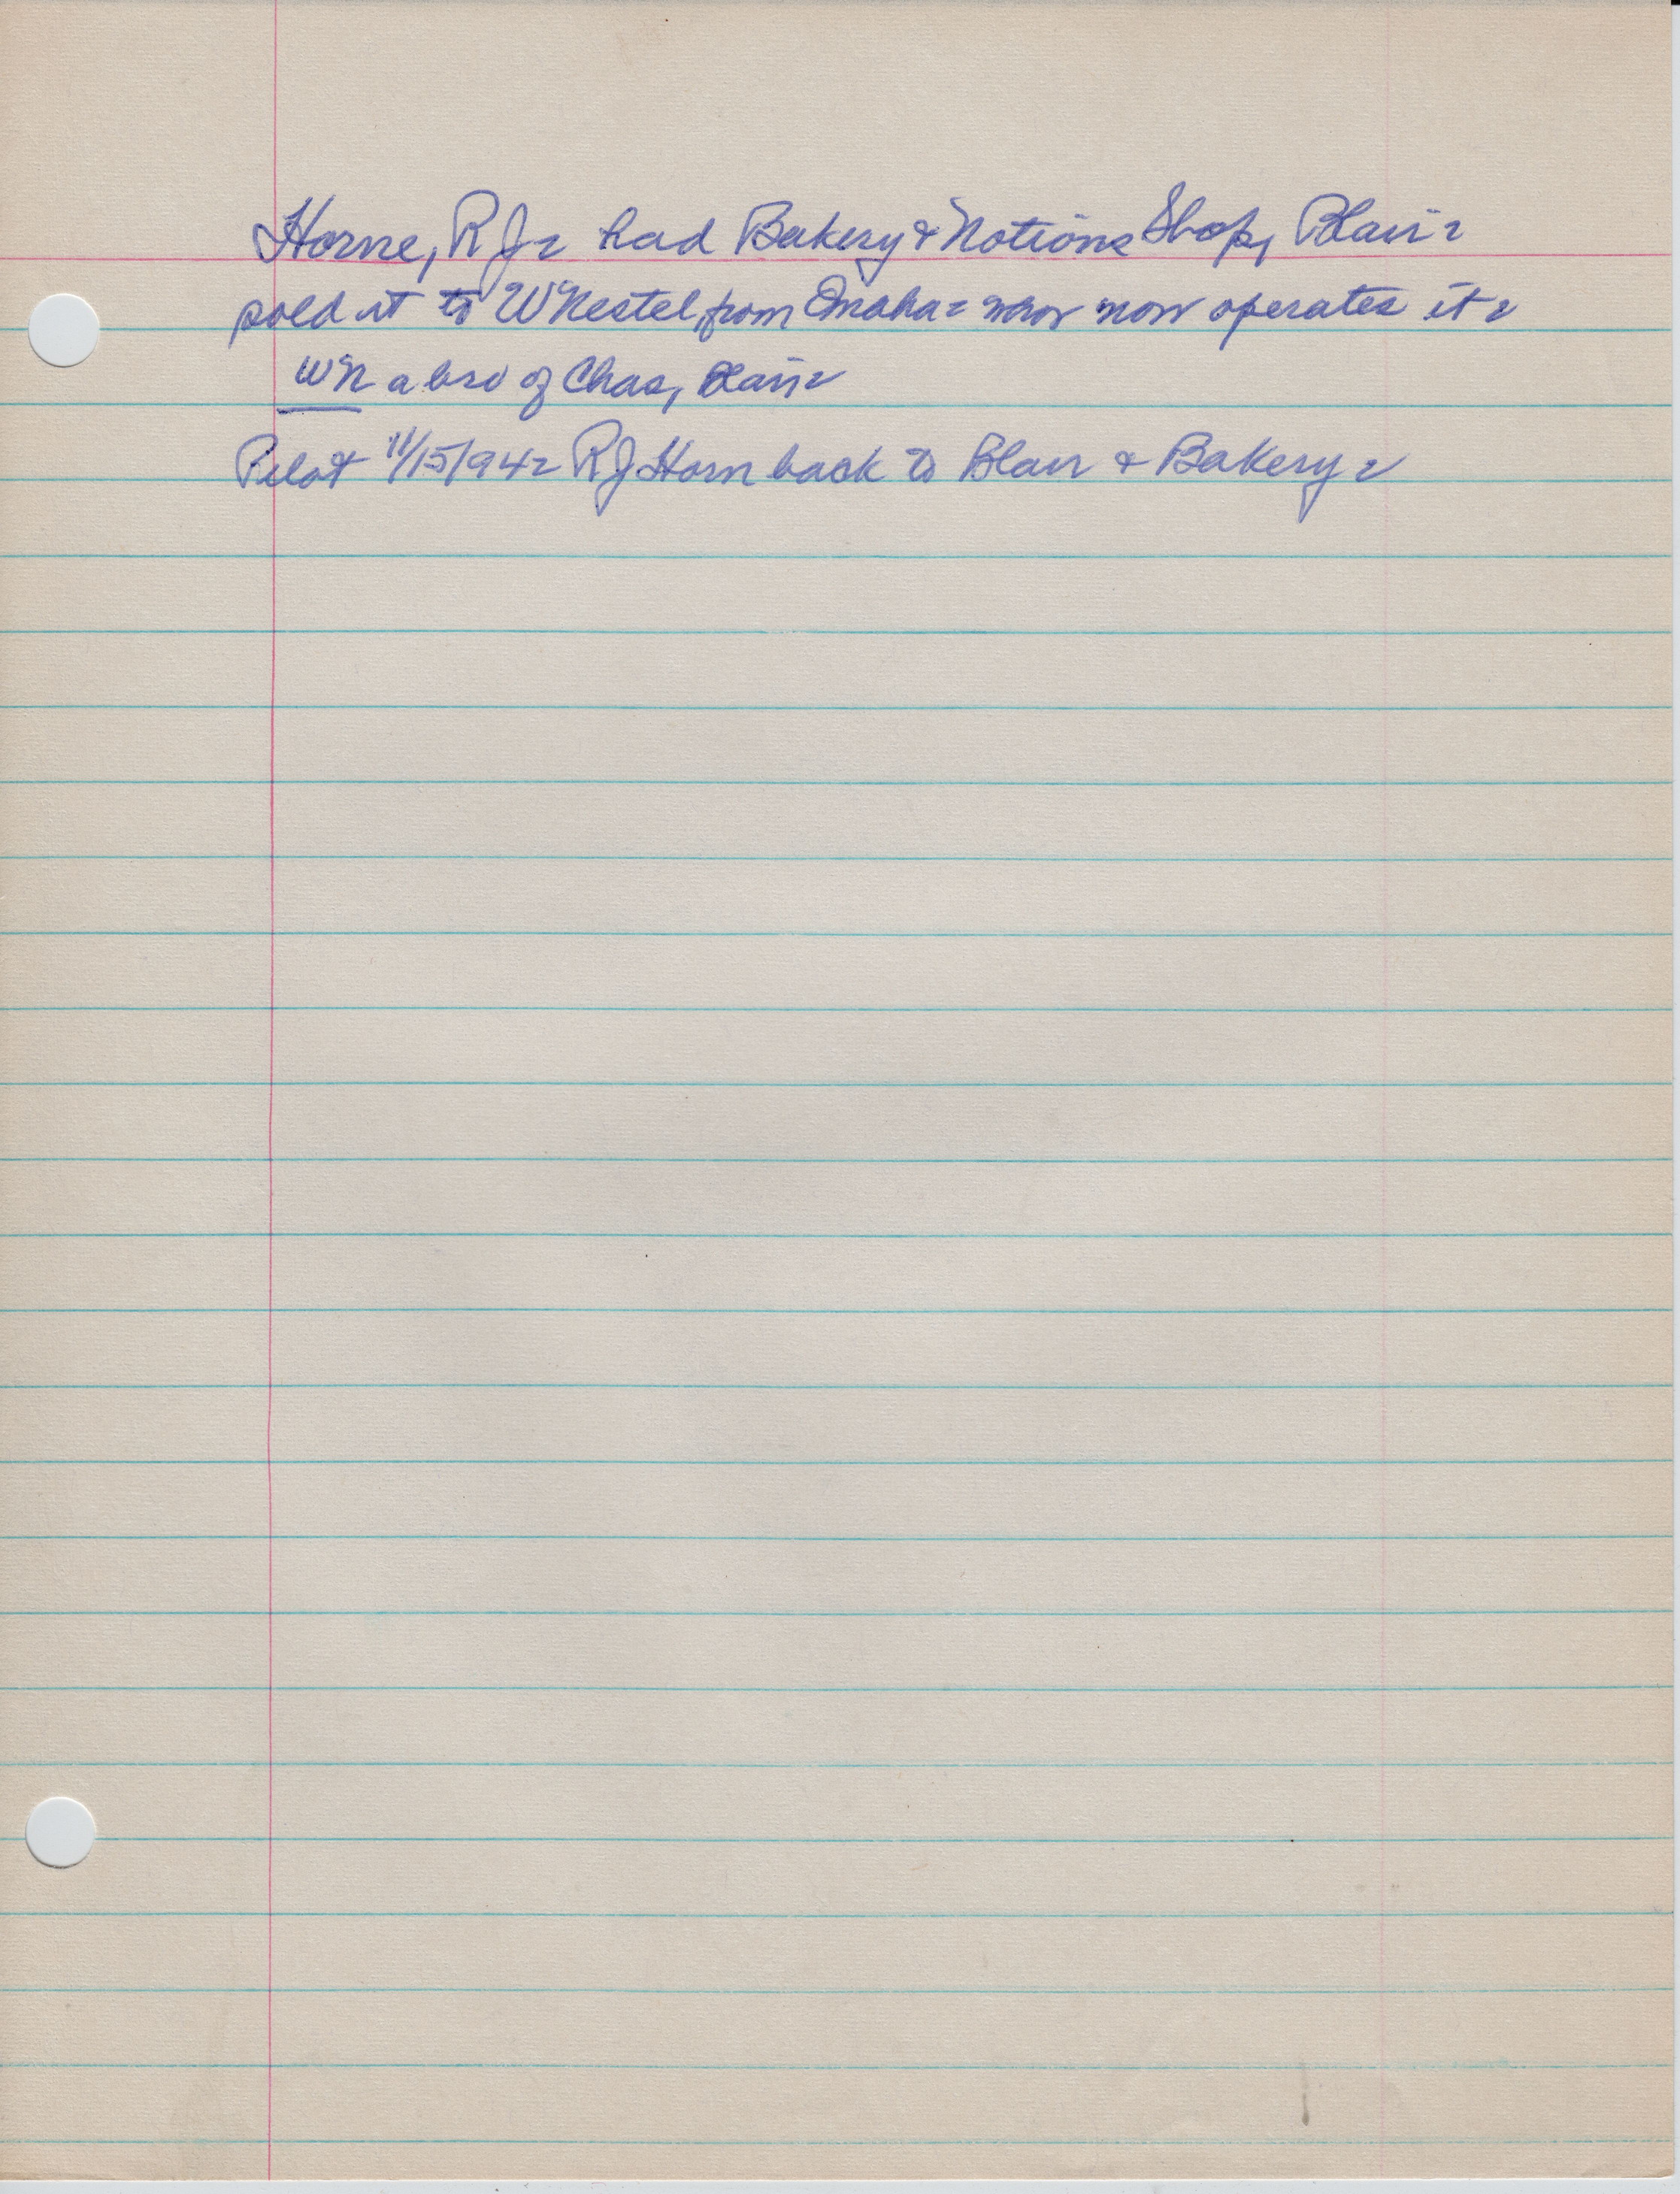 Horne, R J - had Bakery & Notions Shop, Blair -
sold it to W Nestel, from Omaha - who now operates it -
WN a bro of Chas, Blair -
Pilot 11/15/94 - R J Horn back to Blair & Bakery -